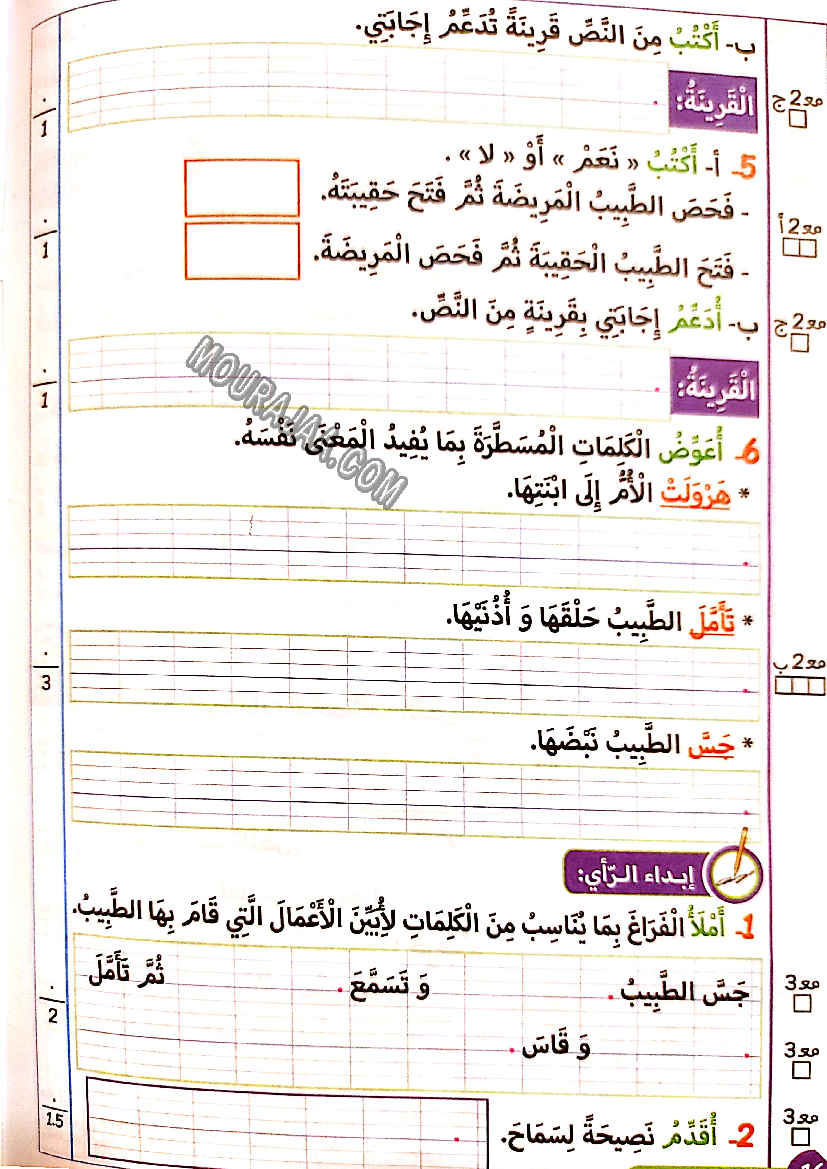 ب- أَكْتُبُ مِنَ النَّصِّ قَرِينَةً تُدَعِّمُ إِجَابَتِي.
الْقَرِينَةُ:
مع2 ج
1
5- أ- أَكْتُبُ « نَعَمْ » أَوْ « لا » .
- فَحَصَ الطَّبِيبُ الْمَرِيضَةَ ثُمَّ فَتَحَ حَقِيبَتَهُ.
مع2 أ
1
- فَتَحَ الطَّبِيبُ الْحَقِيبَةَ ثُمَّ فَحَصَ الْمَرِيضَةَ.
ب- أُدَعِّمُ إِجَابَتِي بِقَرِينَةٍ مِنَ النَّصِّ.
مع2 ج
الْقَرِينَةُ:
1
MOURAJAA.COM
6- أُعَوِّضُ الْكَلِمَاتِ الْمُسَطَّرَةَ بِمَا يُفِيدُ الْمَعْنَى نَفْسَهُ.
* هَرْوَلَتْ الْأُمُّ إِلَى ابْنَتِهَا.
* تَأَمَّلَ الطَّبِيبُ حَلْقَهَا وَ أُذُنَيْهَا.
مع2 ب
3
* جَسَّ الطَّبِيبُ نَبْضَهَا.
إبداء الرّأي:
1- أَمْلَأُ الْفَرَاغَ بِمَا يُنَاسِبُ مِنَ الْكَلِمَاتِ لِأُبَيِّنَ الْأَعْمَالَ الَّتِي قَامَ بِهَا الطَّبِيبُ.
جَسَّ الطَّبِيبُ. وَ تَسَمَّعَ. ثُمَّ تَأَمَّلَ
مع3
2
. وَ قَاسَ.
مع3
2- أُقَدِّمُ نَصِيحَةً لِسَمَاحَ.
مع3
1.5